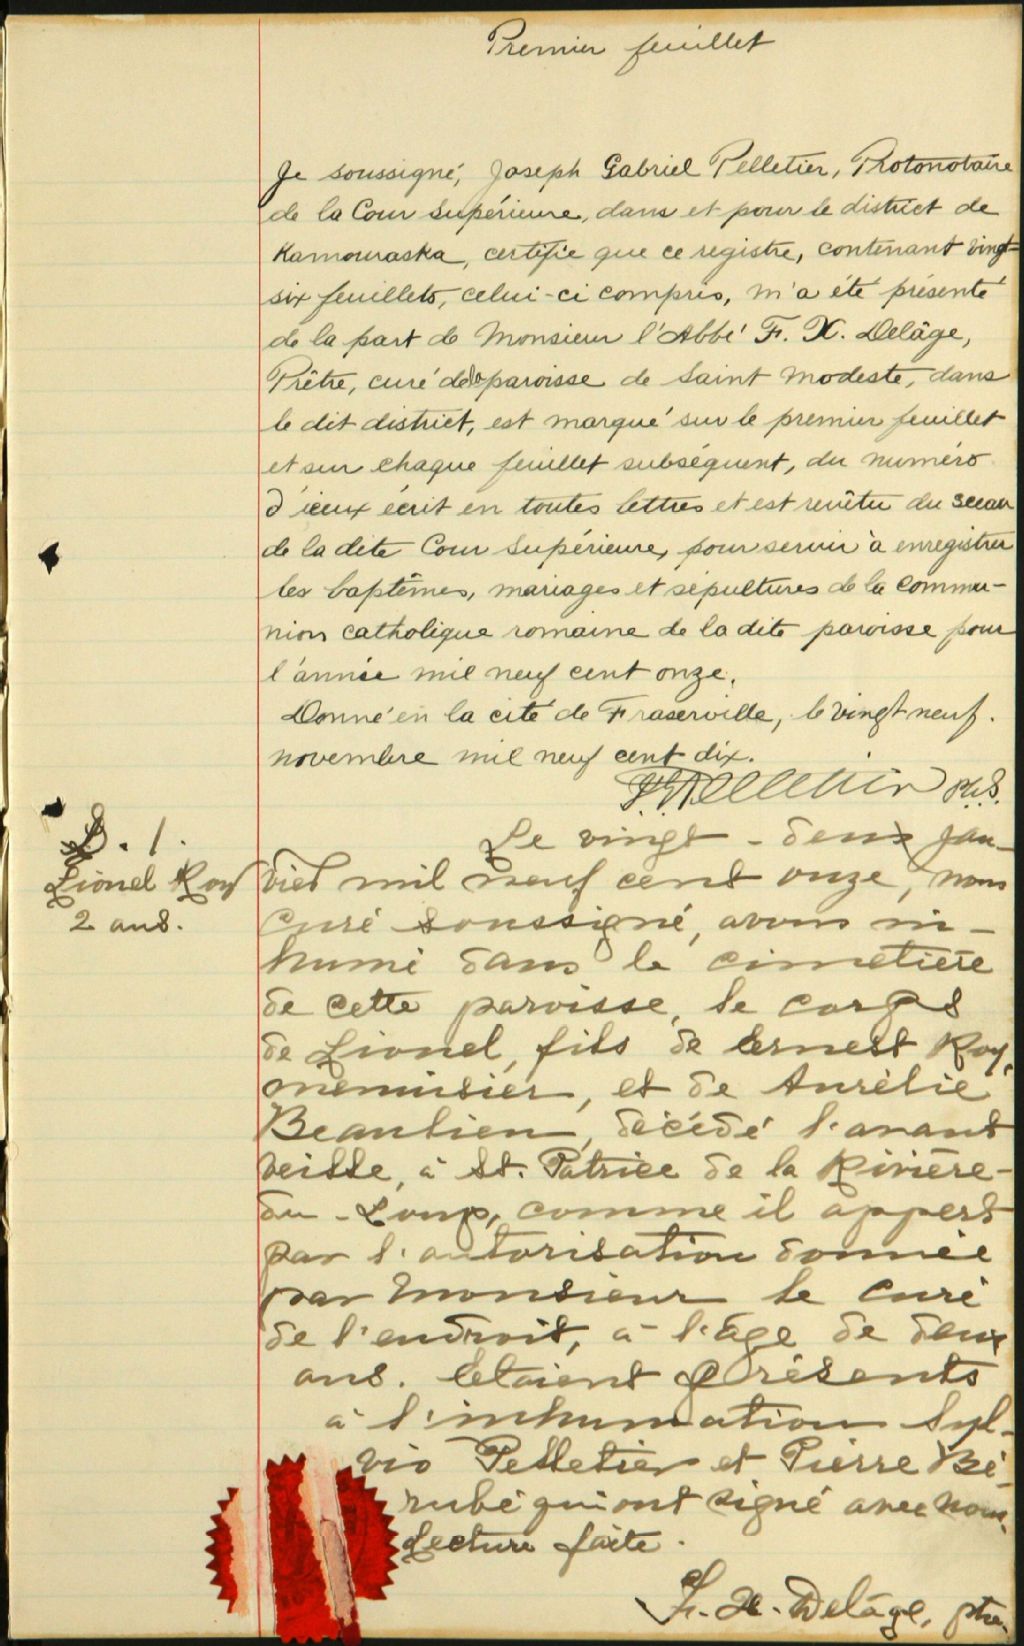 Premier feuillet
Je soussigné, Joseph Gabriel Pelletier, Protonotaire
de la Cour Supérieure, dans et pour le district de
Kamouraska, certifie que ce registre, contenant vingt-
six feuillets, celui-ci compris, m'a été présenté
de la part de Monsieur l'Abbé F. X. Delâge,
Prêtre, curé de la paroisse de Saint Modeste, dans
le dit district, est marqué sur le premier feuillet
et sur chaque feuillet subséquent, du numéro
d'iceux écrit en toutes lettres et est revêtu du sceau
de la dite Cour Supérieure, pour servir à enregistrer
les baptêmes, mariages et sépultures de la Commu-
nion catholique romaine de la dite paroisse pour
l'année mil neuf cent onze.
Donné en la cité de Fraserville, le vingt neuf
novembre mil neuf cent dix.
JG Pelletier P.C.S.
S. 1.
Lionel Roy
2 ans.
Le vingt-deux jan-
vier mil neuf cent onze, nous
curé soussigné, avons in-
humé dans le cimetière
de cette paroisse, le corps
de Lionel, fils de Ernest Roy,
menuisier, et de Aurélie
Beaulieu, décédé l'avant
veille, à St. Patrice de la Rivière-
du-Loup, comme il appert
par l'autorisation donnée
par Monsieur le curé
de l'endroit, à l'âge de deux
ans. Etaient présents
à l'inhumation Syl-
vio Pelletier et Pierre Bé-
rubé qui ont signé avec nous.
Lecture faite.
F. X. Delâge, ptre.